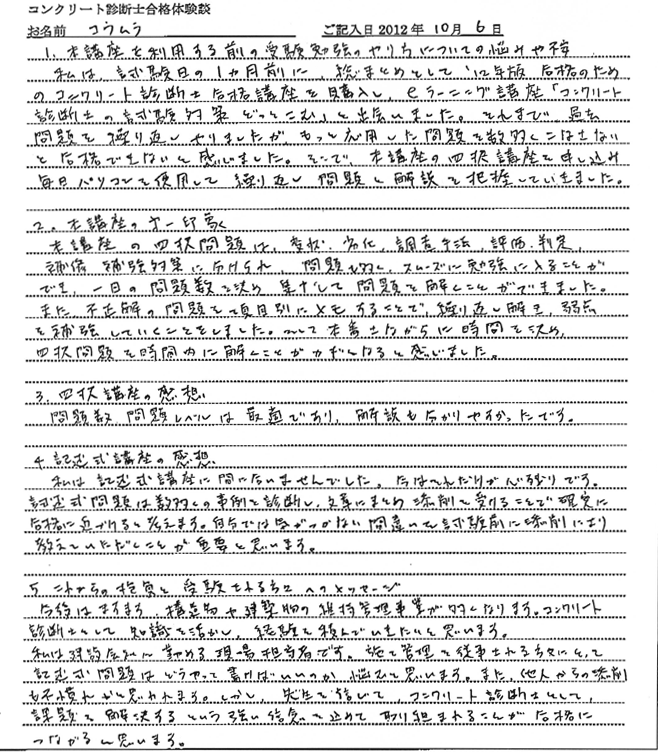 コンクリート診断士合格体験談
お名前 コウムラ ご記入日2012年10月6日
1. 本講座を利用する前の受験勉強のやり方についての悩みや不安
私は、試験日の1カ月前に、総まとめとして'12年版 合格のため
のコンクリート診断士合格講座を購入し、eラーニング講座「コンクリート
診断士の試験対策 どっとこむ」と出会いました。それまで、過去
問題を繰り返しやりましたが、もっと応用した問題を数多くこなさない
と合格できないと感じました。そこで、本講座の四択講座を申し込み
毎日パソコンを使用して繰り返し問題と解説を把握していきました。
2. 本講座の第一印象
本講座の四択問題は、変状、劣化、調査手法、評価、判定、
補修 補強対策に分けられ、問題も多く、スムーズに勉強に入ることが
でき、一日の問題数を決め 集中して問題を解くことができました。
また、不正解の問題を項目別にメモすることで、繰り返し解き、弱点
を補強していくことをしました。そして本番さながらに時間を決め、
四択問題を時間内に解くことがカギとなると感じました。
3. 四択講座の感想
問題数、問題レベルは最適であり、解説も分かりやすかったです。
4. 記述式講座の感想
私は記述式講座に間に合いませんでした。今はそれだけが心残りです。
記述式問題は数多くの事例を診断し、文章にまとめ添削を受けることで確実に
合格に近づけると考えます。自分では気がつかない間違いを試験前に添削により
教えていただくことが重要と思います。
5. これからの抱負と受験される方へのメッセージ
今後はますます、構造物や建築物の維持管理事業が多くなります。コンクリート
診断士として知識を活かし、経験を積んでいきたいと思います。
私は建設会社に勤める現場担当者です。施工管理を従事される方にとって
記述式問題はどうやって書けばいいのか悩むと思います。また、他人からの添削
も不慣れかと思われます。しかし、先生を信じて、コンクリート診断士として、
課題を解決するという強い信念を込めて取り組まれることが合格に
つながると思います。